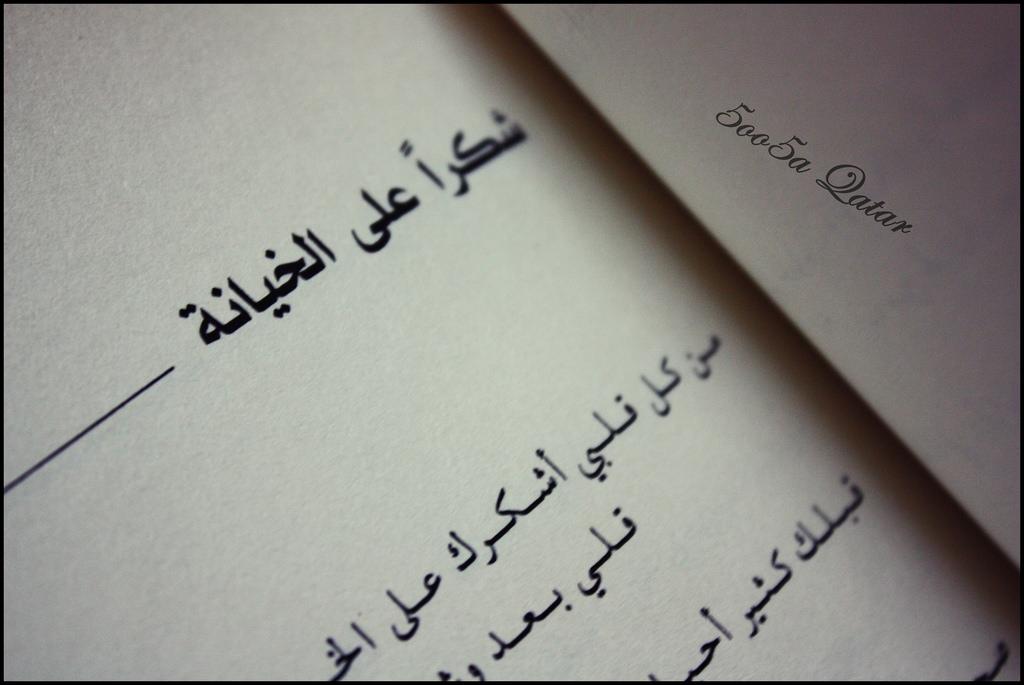 5oo5a Qatar
شكراً على الخيانة
من كل قلبي أشكرك على
قلبي بعد
قبلك كثير